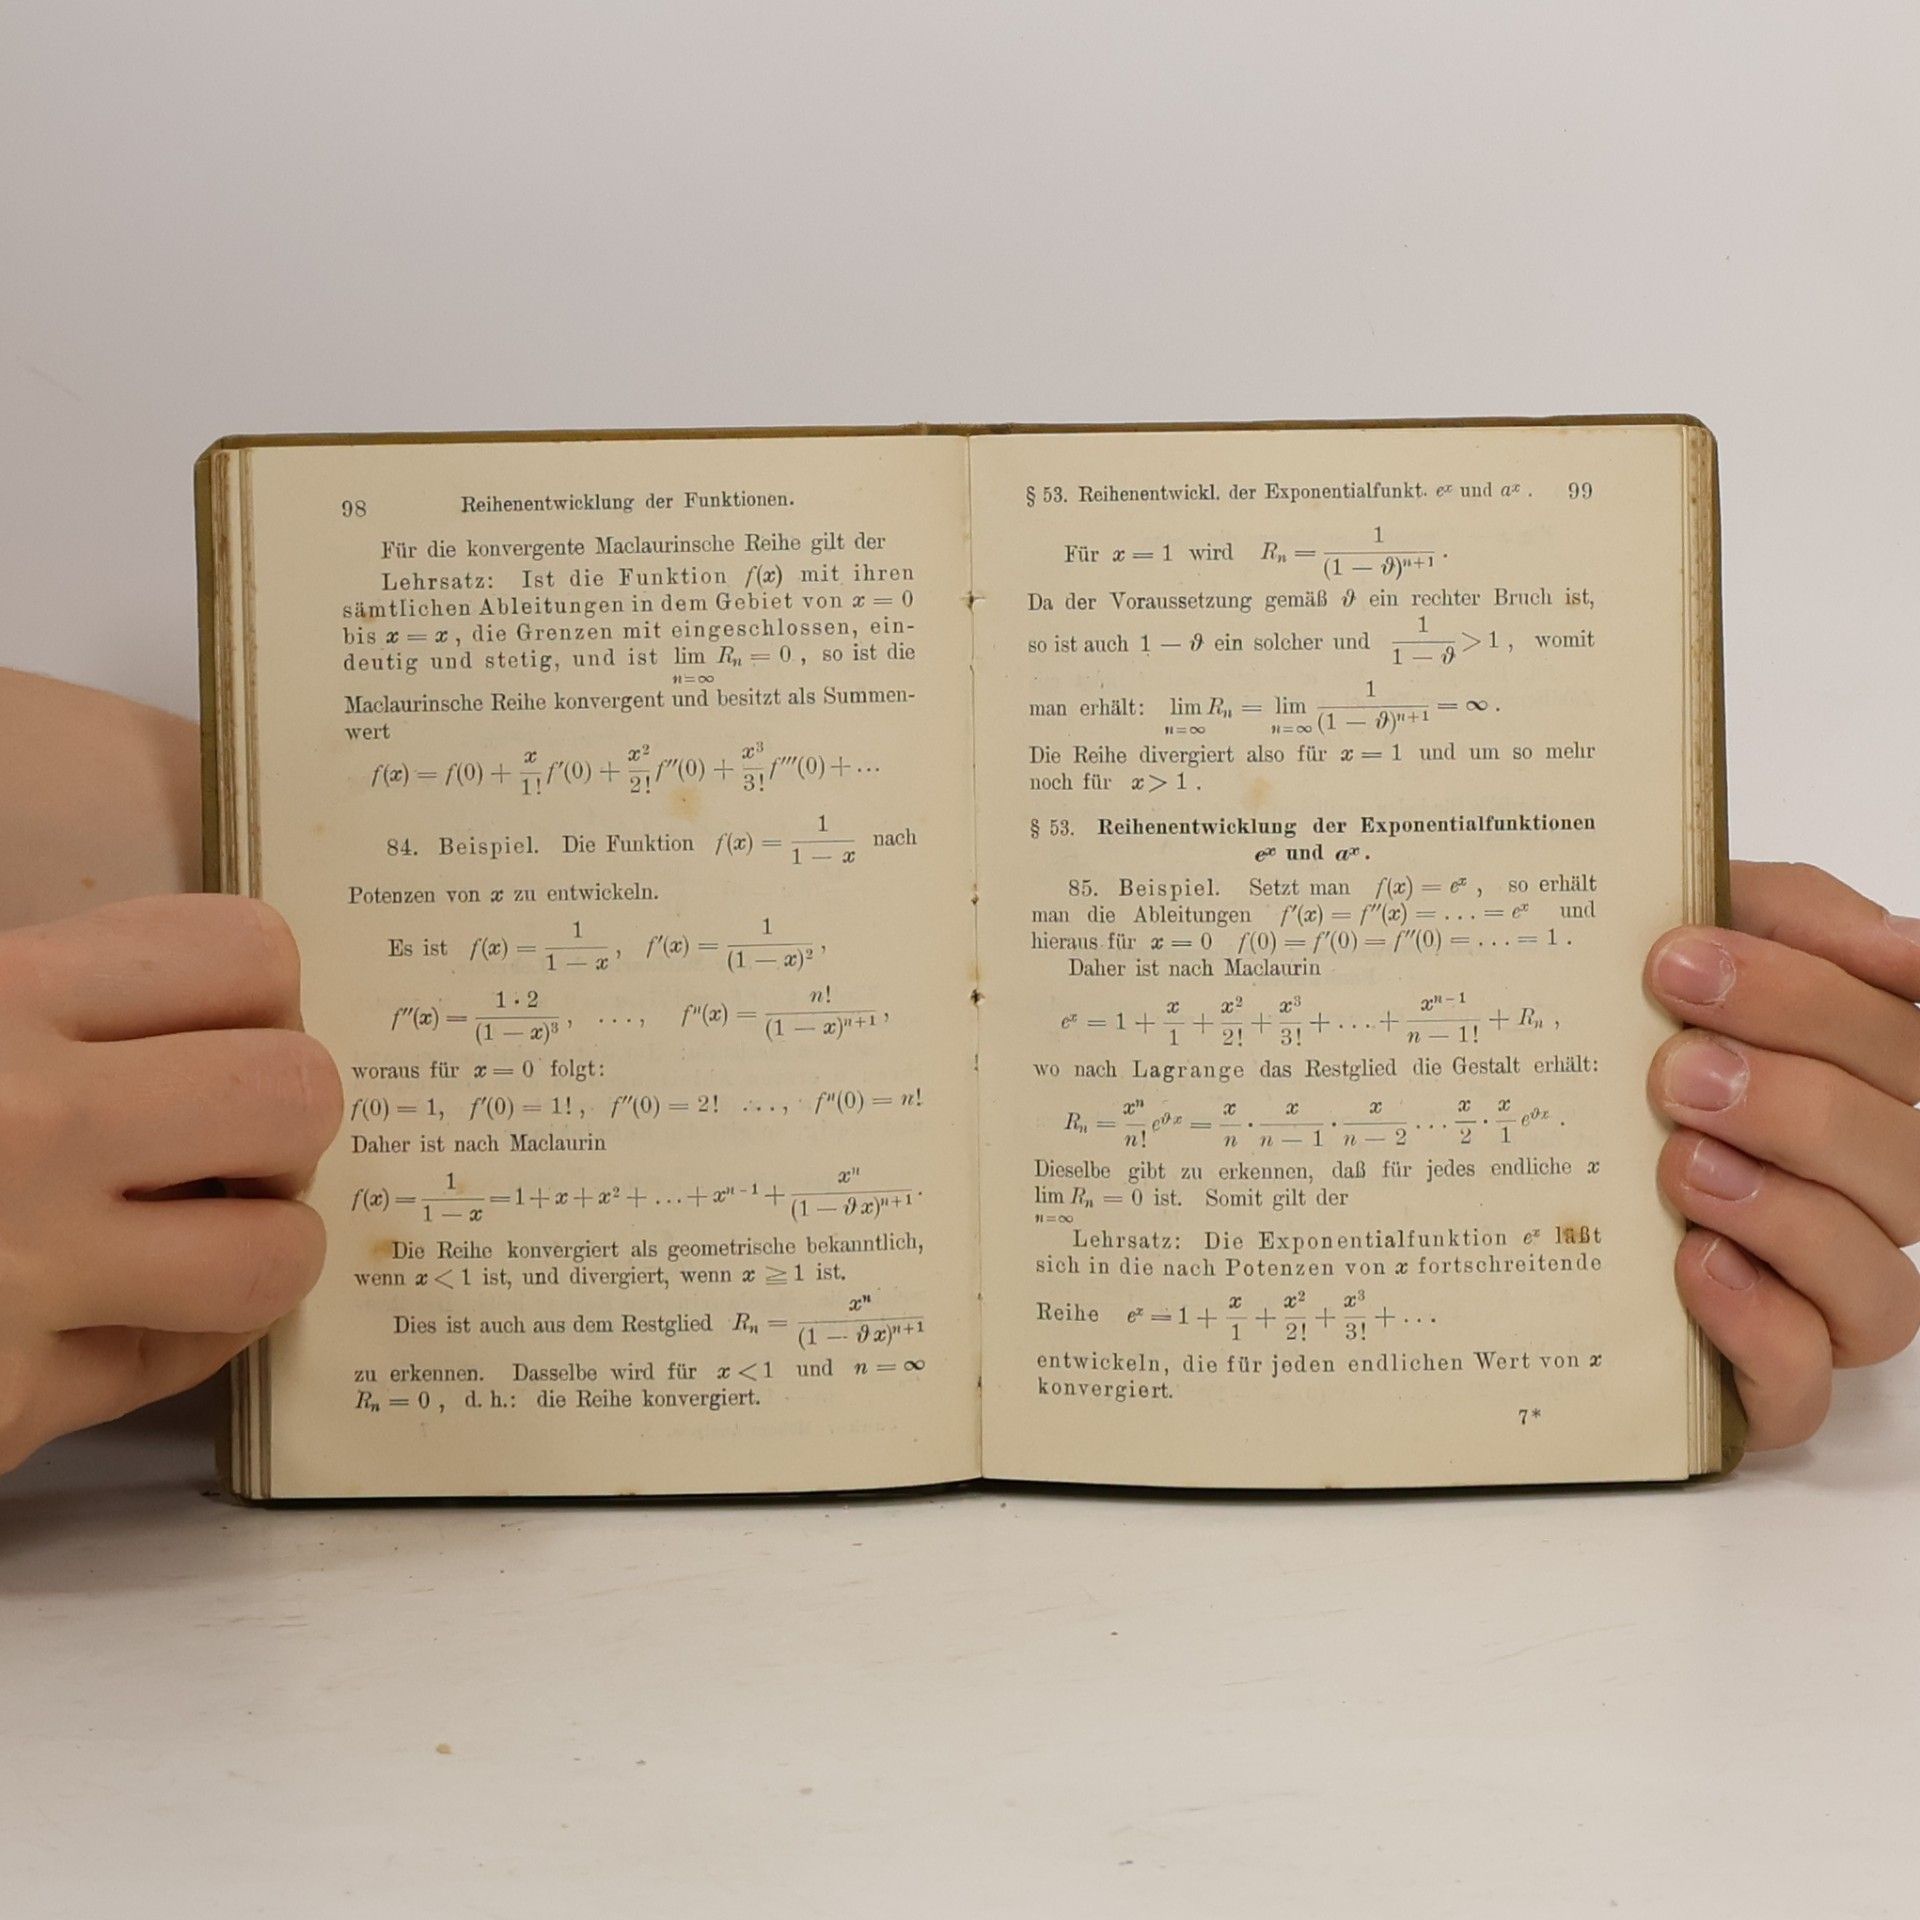 98 Reihenentwicklung der Funktionen.
Für die konvergente Maclaurinsche Reihe gilt der
Lehrsatz: Ist die Funktion f(x) mit ihren
sämtlichen Ableitungen in dem Gebiet von x = 0
bis x = x, die Grenzen mit eingeschlossen, ein-
deutig und stetig, und ist lim R_n = 0, so ist die
n=∞
Maclaurinsche Reihe konvergent und besitzt als Summen-
wert
f(x) = f(0) + x/1! f′(0) + x²/2! f″(0) + x³/3! f‴(0) + ...
84. Beispiel. Die Funktion f(x) = 1/(1 − x) nach
Potenzen von x zu entwickeln.
Es ist f(x) = 1/(1 − x), f′(x) = 1/(1 − x)²,
f″(x) = 1·2/(1 − x)³, ..., fⁿ(x) = n!/(1 − x)ⁿ⁺¹,
woraus für x = 0 folgt:
f(0) = 1, f′(0) = 1!, f″(0) = 2! ..., fⁿ(0) = n!
Daher ist nach Maclaurin
f(x) = 1/(1 − x) = 1 + x + x² + ... + xⁿ⁻¹ + xⁿ/(1 − ϑx)ⁿ⁺¹.
Die Reihe konvergiert als geometrische bekanntlich,
wenn x < 1 ist, und divergiert, wenn x ≧ 1 ist.
Dies ist auch aus dem Restglied R_n = xⁿ/(1 − ϑx)ⁿ⁺¹
zu erkennen. Dasselbe wird für x < 1 und n = ∞
R_n = 0, d. h.: die Reihe konvergiert.
§ 53. Reihenentwickl. der Exponentialfunkt. eˣ und aˣ. 99
Für x = 1 wird R_n = 1/(1 − ϑ)ⁿ⁺¹.
Da der Voraussetzung gemäß ϑ ein rechter Bruch ist,
so ist auch 1 − ϑ ein solcher und 1/(1 − ϑ) > 1, womit
man erhält: lim R_n = lim 1/(1 − ϑ)ⁿ⁺¹ = ∞.
n=∞ n=∞
Die Reihe divergiert also für x = 1 und um so mehr
noch für x > 1.
§ 53. Reihenentwicklung der Exponentialfunktionen
eˣ und aˣ.
85. Beispiel. Setzt man f(x) = eˣ, so erhält
man die Ableitungen f′(x) = f″(x) = ... = eˣ und
hieraus für x = 0 f(0) = f′(0) = f″(0) = ... = 1.
Daher ist nach Maclaurin
eˣ = 1 + x/1 + x²/2! + x³/3! + ... + xⁿ⁻¹/(n − 1!) + R_n,
wo nach Lagrange das Restglied die Gestalt erhält:
R_n = xⁿ/n! e^ϑx = x/n · x/(n − 1) · x/(n − 2) ... x/2 · x/1 e^ϑx.
Dieselbe gibt zu erkennen, daß für jedes endliche x
lim R_n = 0 ist. Somit gilt der
n=∞
Lehrsatz: Die Exponentialfunktion eˣ läßt
sich in die nach Potenzen von x fortschreitende
Reihe eˣ = 1 + x/1 + x²/2! + x³/3! + ...
entwickeln, die für jeden endlichen Wert von x
konvergiert.
7*